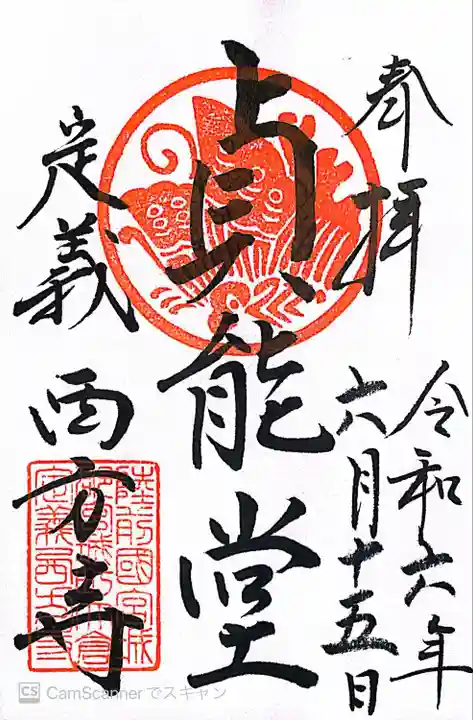 奉拝
令和六年
六月十五日
貞能堂
定義
西方寺
陸前國宮城
定義西方寺
CS CamScannerでスキャン